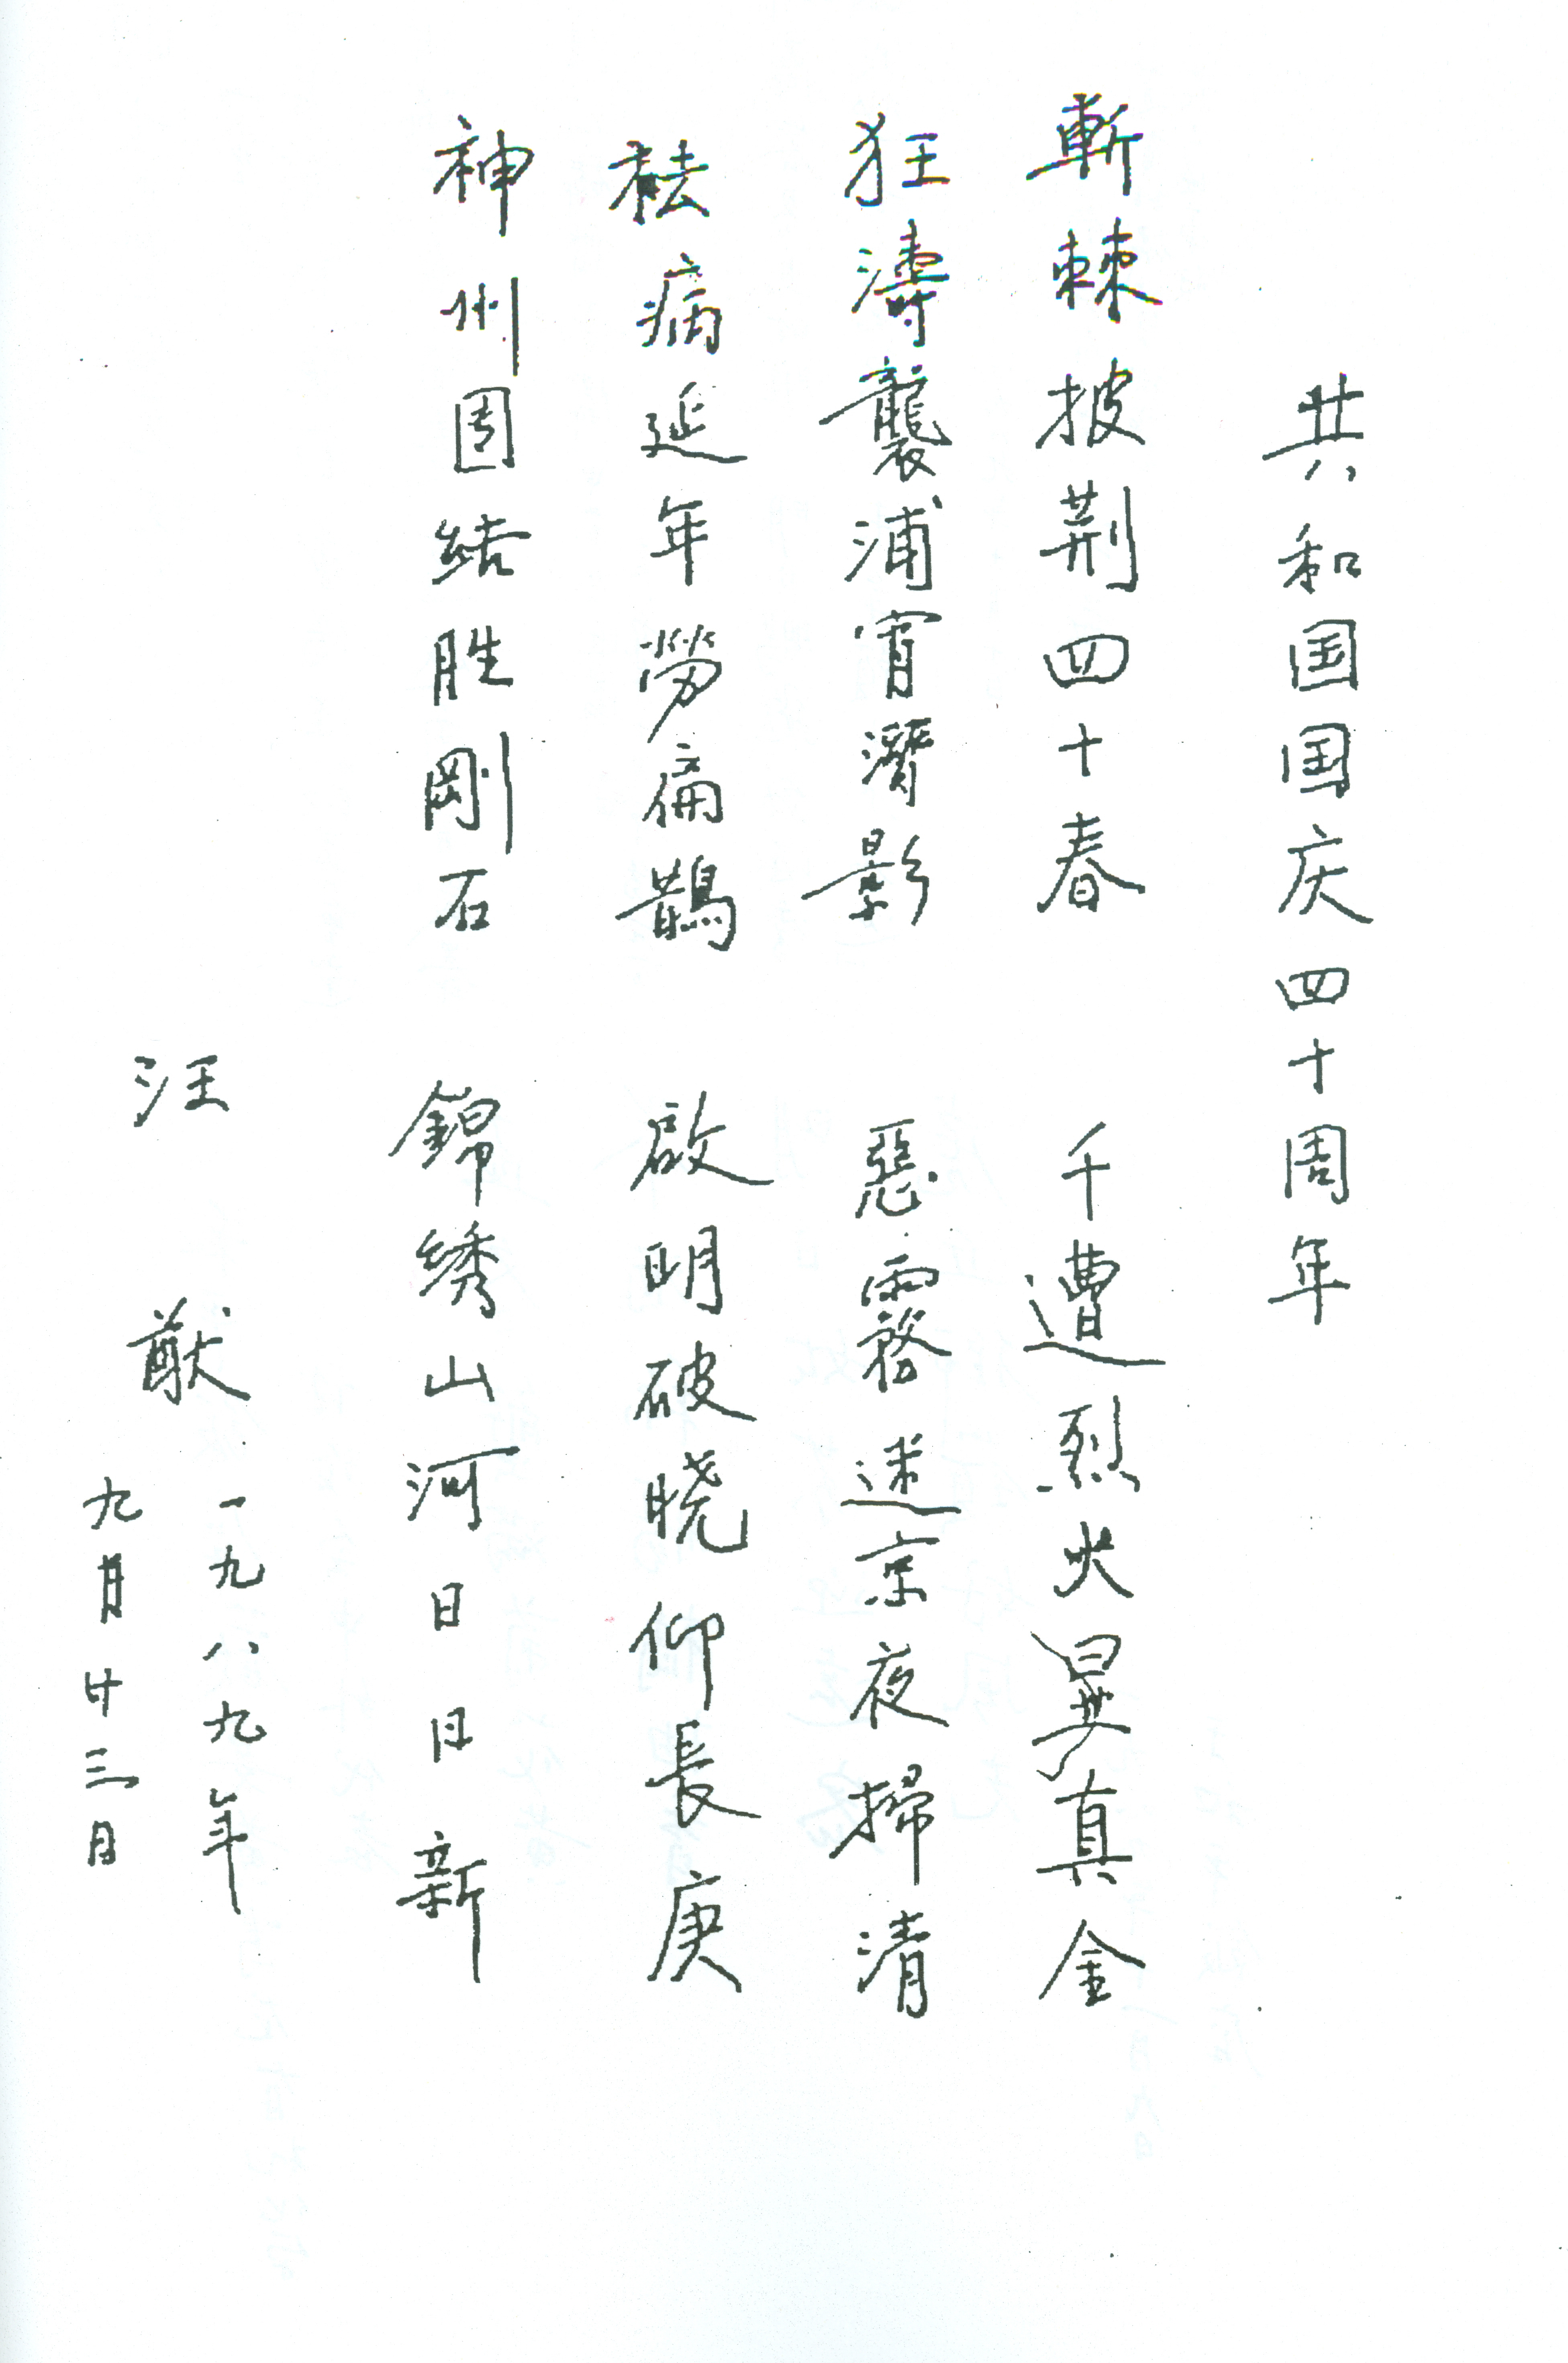 共和国国庆四十周年
斬棘披荆四十春 千遭烈火異真金
狂濤襲浦宵潛影 惡霧迷京夜掃清
祛病延年勞扁鵲 啟明破晓仰長庚
神州团結胜剛石 錦绣山河日日新
汪猷
一九八九年
九月廿三日